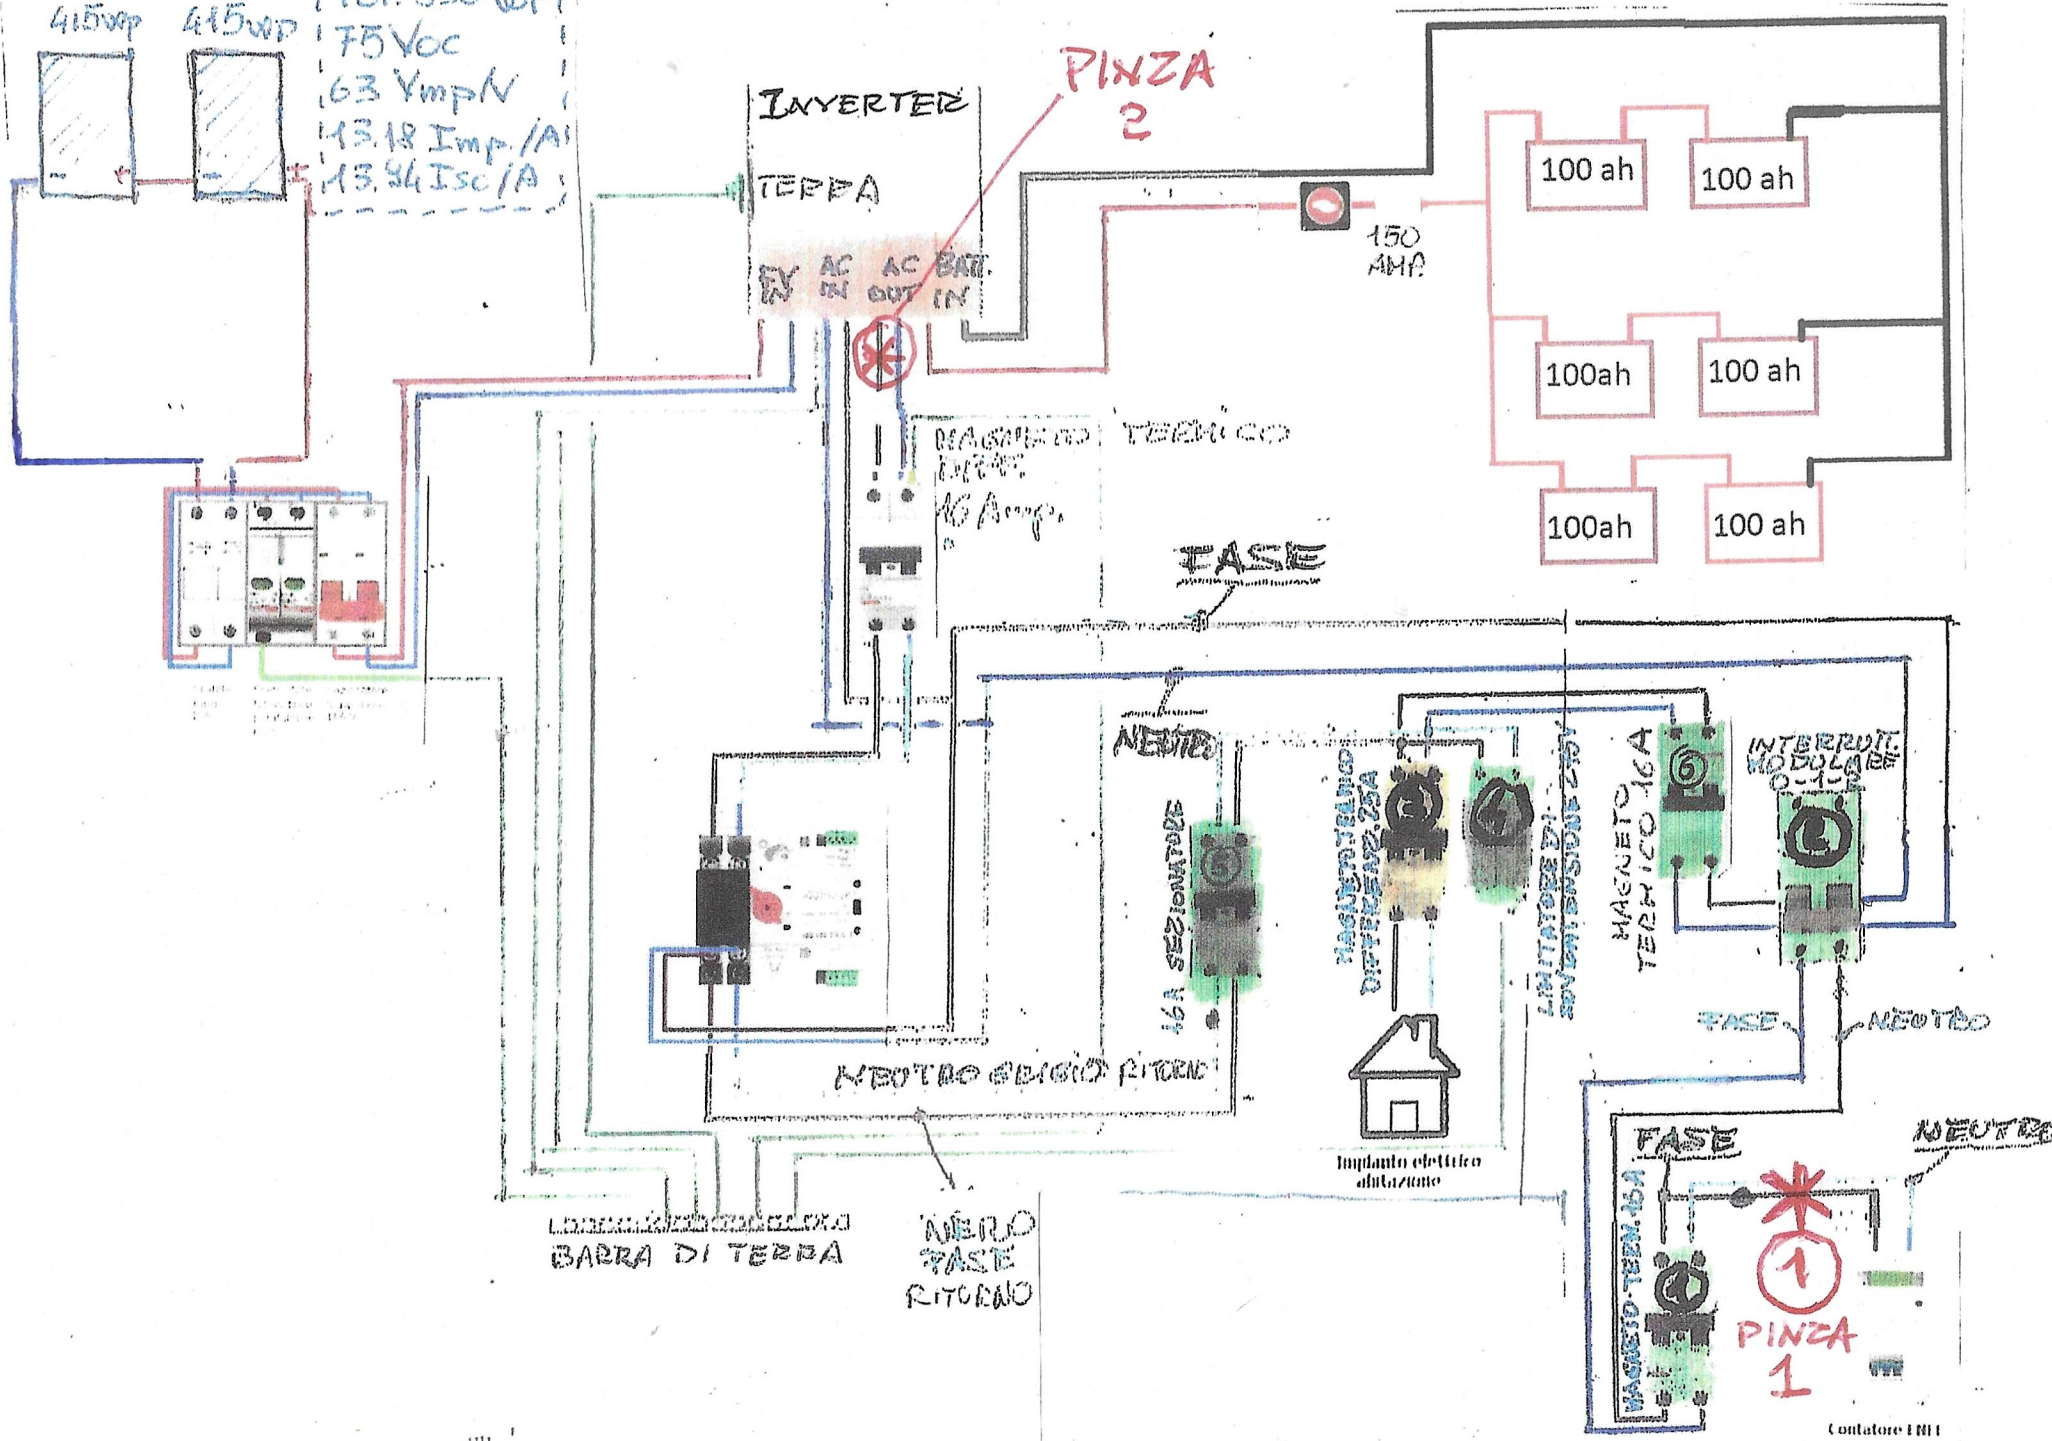 415wp
415wp
75 Voc
63 Vmp/V
13.18 Imp./A
13.94 Isc/A
INVERTER
TERRA
PV
IN
AC
IN
AC
OUT
BATT.
IN
PINZA
2
150
AMP.
100 ah
100 ah
100ah
100 ah
100ah
100 ah
MAGNETO TERMICO
DIFF.
16 Amp.
FASE
NEUTRO
16A SEZIONATORE
5
MAGNETOTERMICO
DIFFERENZ. 25A
3
4
LIMITATORE DI
SOVRATENSIONE 275V
MAGNETO
TERMICO 16A
6
INTERRUTT.
MODULARE
0-1-2
2
FASE
NEUTRO
NEUTRO GRIGIO RITORNO
Impianto elettrico
abitazione
BARRA DI TERRA
NERO
FASE
RITORNO
FASE
NEUTRO
MAGNETO-TERM. 16A
1
1
PINZA
1
Contatore ENEL